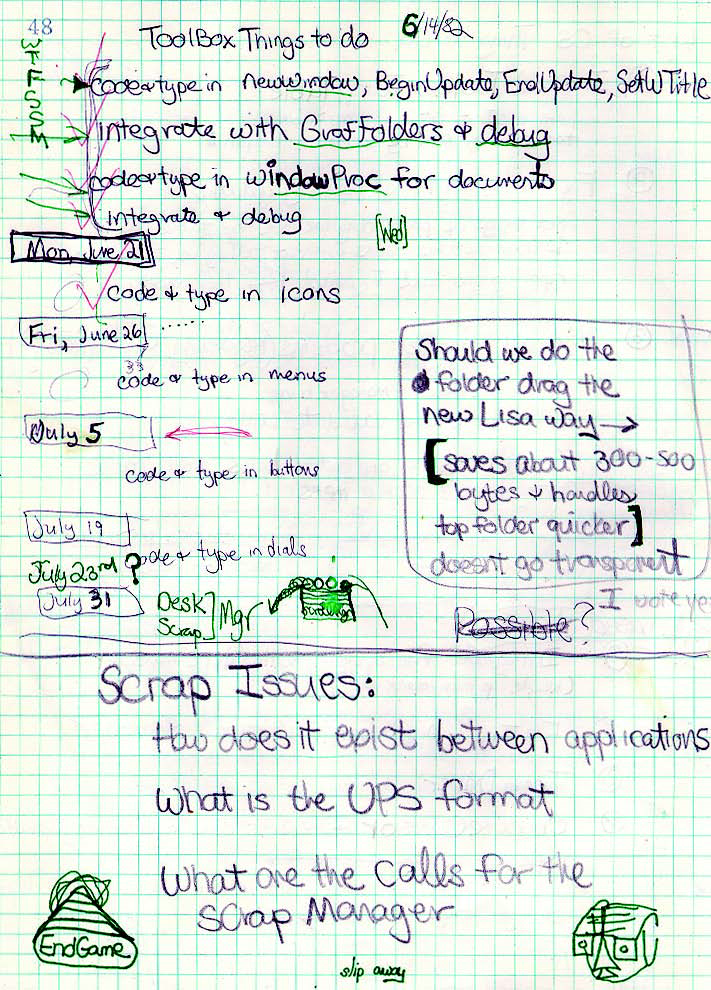 48
ToolBox Things to do
6/14/82
W
T
F
S
S
M
code & type in newwindow, BeginUpdate, EndUpdate, SetWTitle
integrate with GrafFolders & debug
code & type in windowProc for documents
integrate & debug
[Wed]
Mon, June 21
code & type in icons
Fri, June 26 ......
code & type in menus
July 5
code & type in buttons
July 19
code & type in dials
July 23rd ?
July 31
Desk
Scrap] Mgr
Should we do the
folder drag the
new Lisa way →
[saves about 300-500
bytes & handles
top folder quicker]
doesn't go transparent
I vote ye
Possible?
Scrap Issues:
How does it exist between applications
What is the UPS format
What are the calls for the
scrap Manager
EndGame
slip away